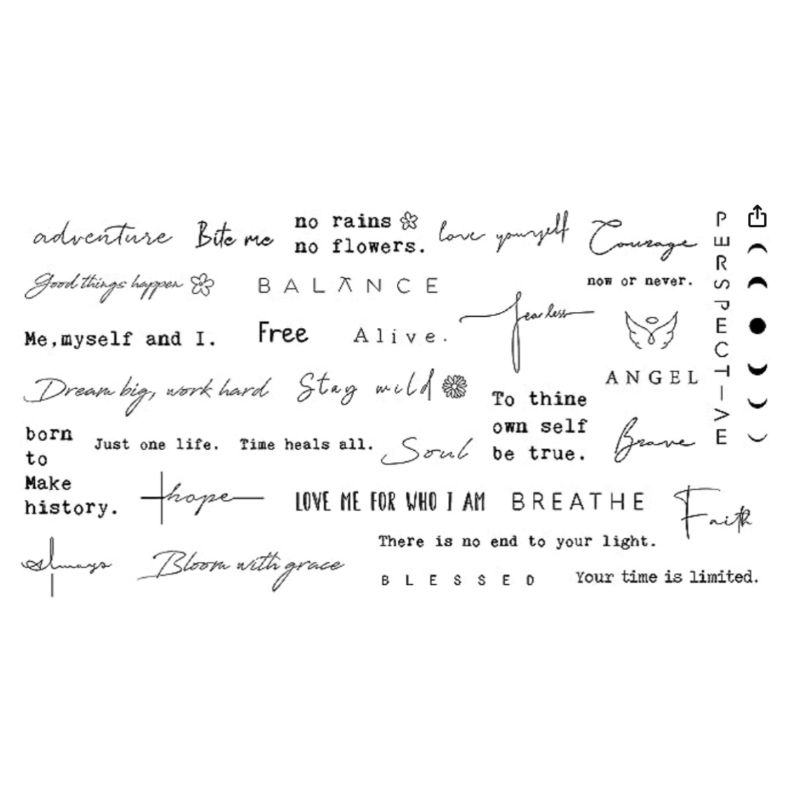 adventure
Bite me
no rains
no flowers.
love yourself
Courage
Good things happen
BALANCE
now or never.
PERSPECTIVE
Me,myself and I.
Free
Alive.
fearless
ANGEL
Dream big, work hard
Stay wild
To thine
own self
be true.
born
to
Make
history.
Just one life.
Time heals all.
Soul
Brave
hope
LOVE ME FOR WHO I AM
BREATHE
Faith
There is no end to your light.
always
Bloom with grace
BLESSED
Your time is limited.